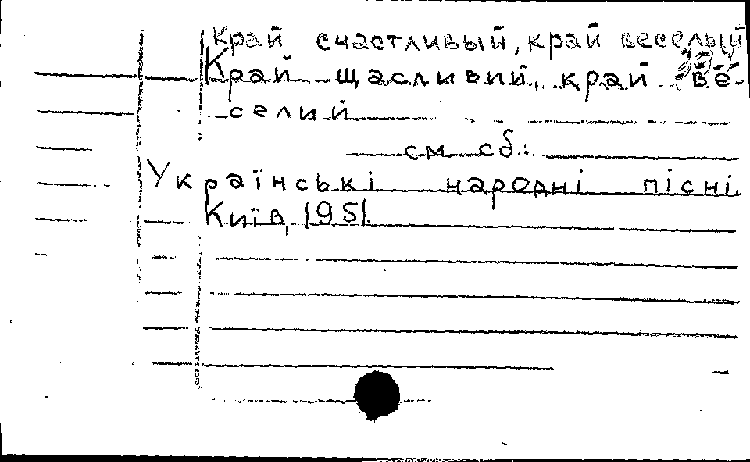 Край счастливый, край веселый
Край щасливий, край ве-
селий
см. сб.:
Українські народні пісні
Київ, 1951.